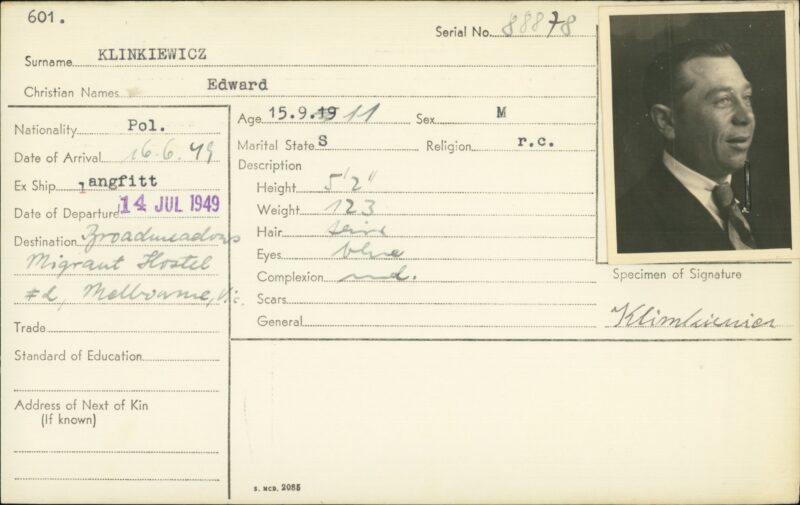 601.
Serial No. 88878
Surname KLINKIEWICZ
Christian Names Edward
Nationality Pol.
Date of Arrival 16.6.49
Ex Ship langfitt
Date of Departure 14 JUL 1949
Destination Broadmeadows
Migrant Hostel
#2, Melbourne, Vic.
Trade
Standard of Education
Address of Next of Kin
(If known)
Age 15.9.19 11 Sex M
Marital State S Religion r.c.
Description
Height 5'2"
Weight 123
Hair
Eyes blue
Complexion md.
Scars
General
Specimen of Signature
Klimkiewicz
S. MCD. 2085